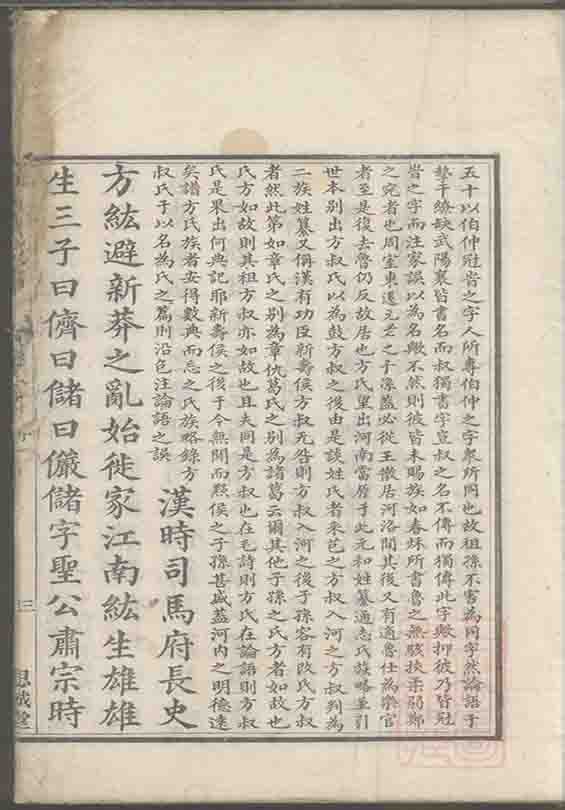 五十以伯仲冠昔之字人所專伯仲之字衆所同也故祖孫不害為同字然論語于
摯干繚缺武陽襄皆書名而叔獨書字豈叔之名不傳而獨傳此字歟抑彼乃皆冠
昔之字而注家誤以為名歟不然則彼皆未賜族如春秋所書魯之無駭挾柔溺鄭
之宛者也周室東遷元老之子孫蓋必從王散居河洛間其後又有適魯仕為樂官
者至是復去魯仍反故居也方氏望出河南當原于此元和姓纂通志氏族略並引
世本别出方叔氏以為鼓方叔之後由是談姓氏者采芑之方叔入河之方叔判為
二族姓纂又稱漢有功臣新壽侯方叔无咎則方叔入河之後子孫容有改氏方叔
者然此第如章氏之别為章仇葛氏之别為諸葛云爾其他子孫之氏方者如故也
氏方如故則其祖方叔亦如故也且夫同是方叔也在毛詩則方氏在論語則方叔
氏是果出何典記耶新壽侯之後于今無聞而黟侯之子孫甚盛蓋河内之明德遠
矣譜方氏族者安得數典而忘之氏族略錄方
叔氏于以名為氏之篇則沿包注論語之誤
漢時司馬府長史
方紘避新莽之亂始徙家江南紘生雄雄
生三子曰儕曰儲曰儼儲字聖公肅宗時
三